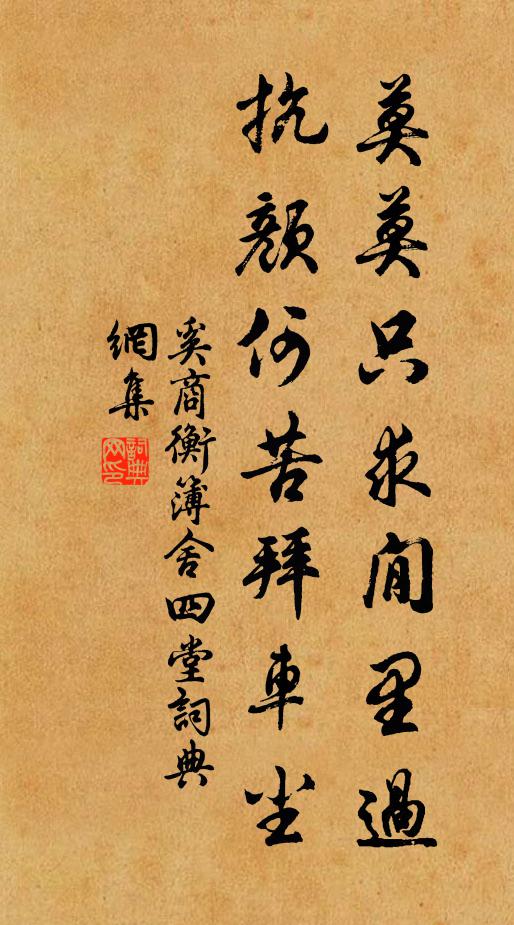 莫莫只求閒里過
抗顏何苦拜車塵
奚商衡簿舍四堂詞典
網集
詞典網印